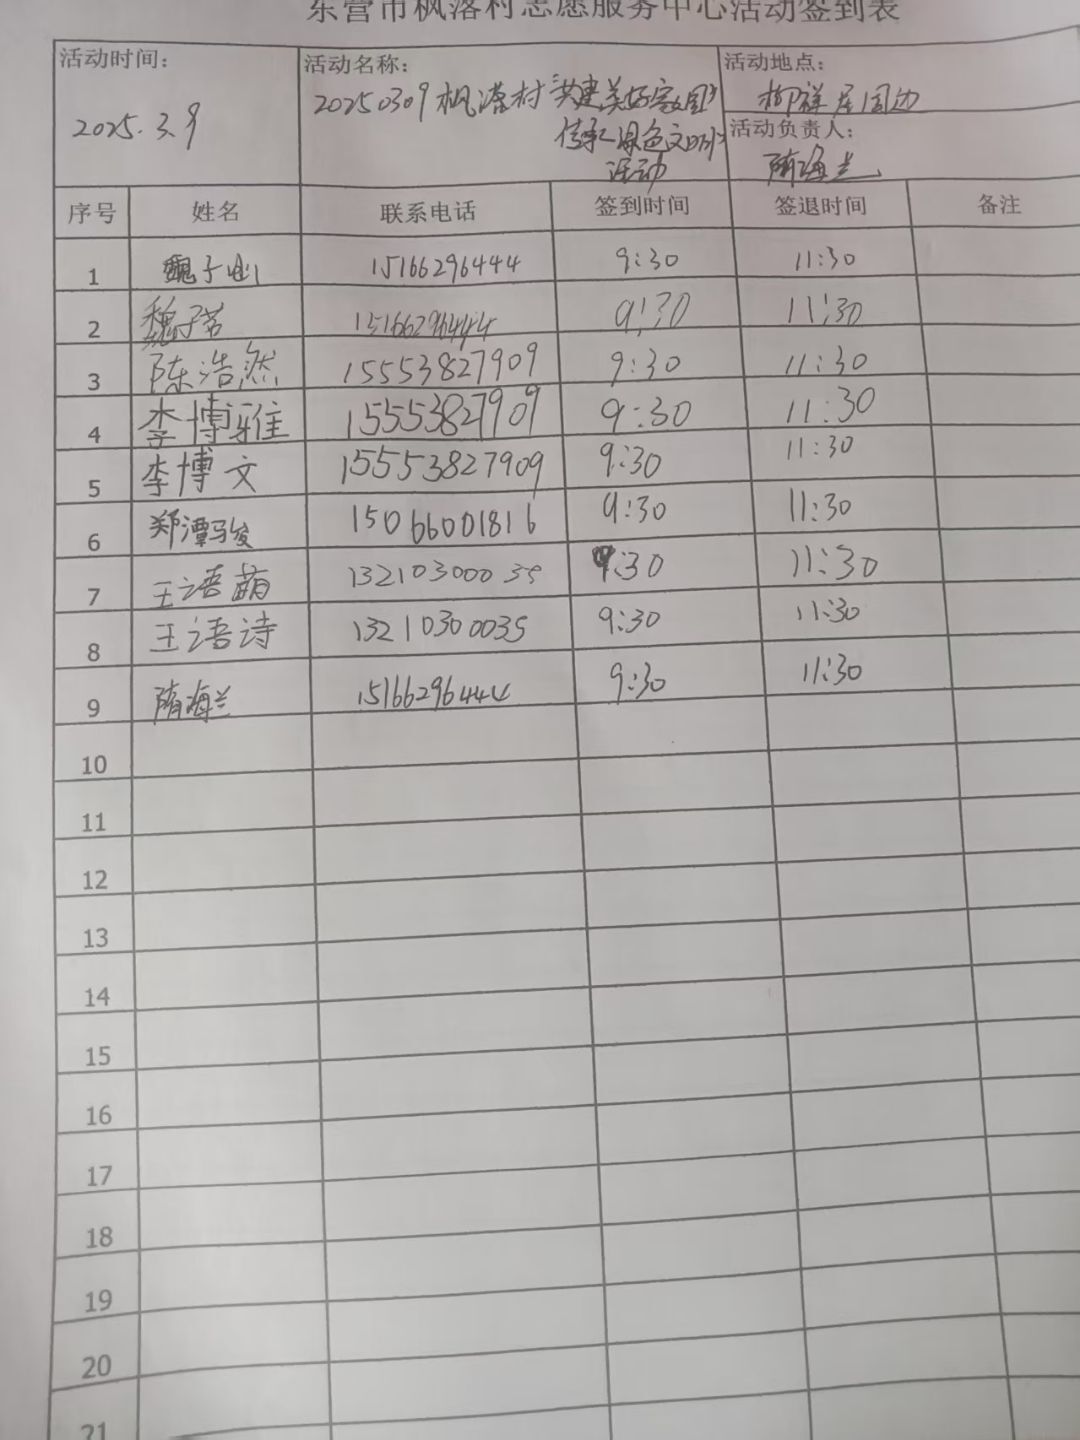 东营市枫落村志愿服务中心活动签到表
活动时间: 2025.3.9
活动名称: 20250309枫落村“共建美好家园
传承绿色文明”
活动
活动地点: 柳祥居周边
活动负责人: 隋海兰
序号 姓名 联系电话 签到时间 签退时间 备注
1 魏子 15166296444 9:30 11:30
2 魏子茗 15166296444 9:30 11:30
3 陈浩然 15553827909 9:30 11:30
4 李博雅 15553827909 9:30 11:30
5 李博文 15553827909 9:30 11:30
6 郑潭骏 15066001816 9:30 11:30
7 王语萌 13210300035 9:30 11:30
8 王语诗 13210300035 9:30 11:30
9 隋海兰 15166296444 9:30 11:30
10
11
12
13
14
15
16
17
18
19
20
21